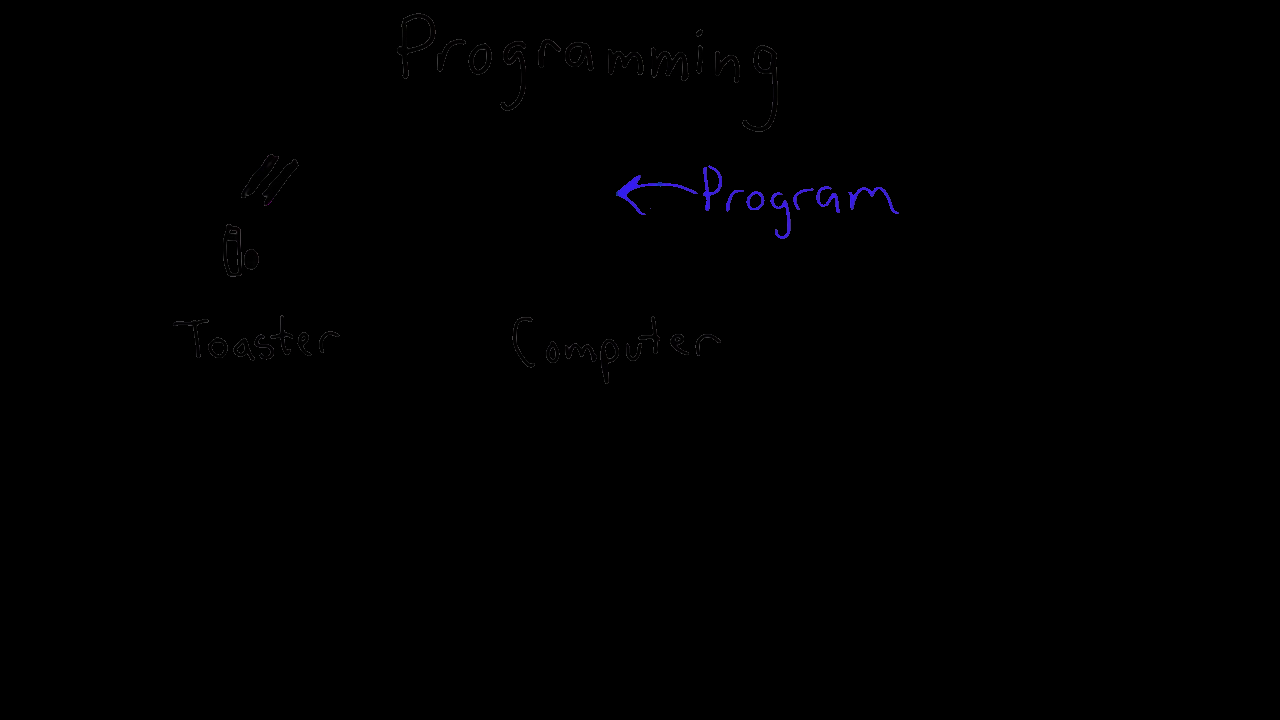 Programming
Program
Toaster
Computer